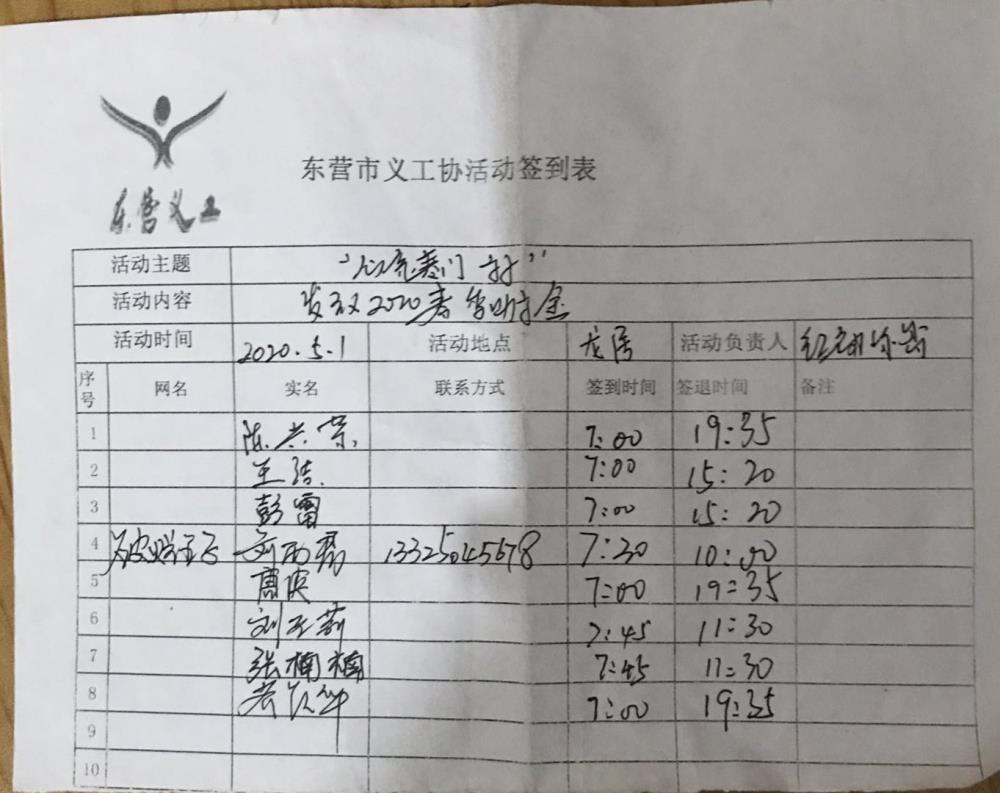 东营义工
东营市义工协活动签到表
活动主题
活动内容 发放2020春 助金
活动时间 2020.5.1 活动地点 龙居 活动负责人
序号 网名 实名 联系方式 签到时间 签退时间 备注
1 陈兴荣 7:00 19:35
2 王洁 7:00 15:20
3 彭雷 7:00 15:20
4 13325045678 7:30 10:00
5 7:00 19:35
6 刘玉莉 7:45 11:30
7 张楠楠 7:45 11:30
8 7:00 19:35
9
10